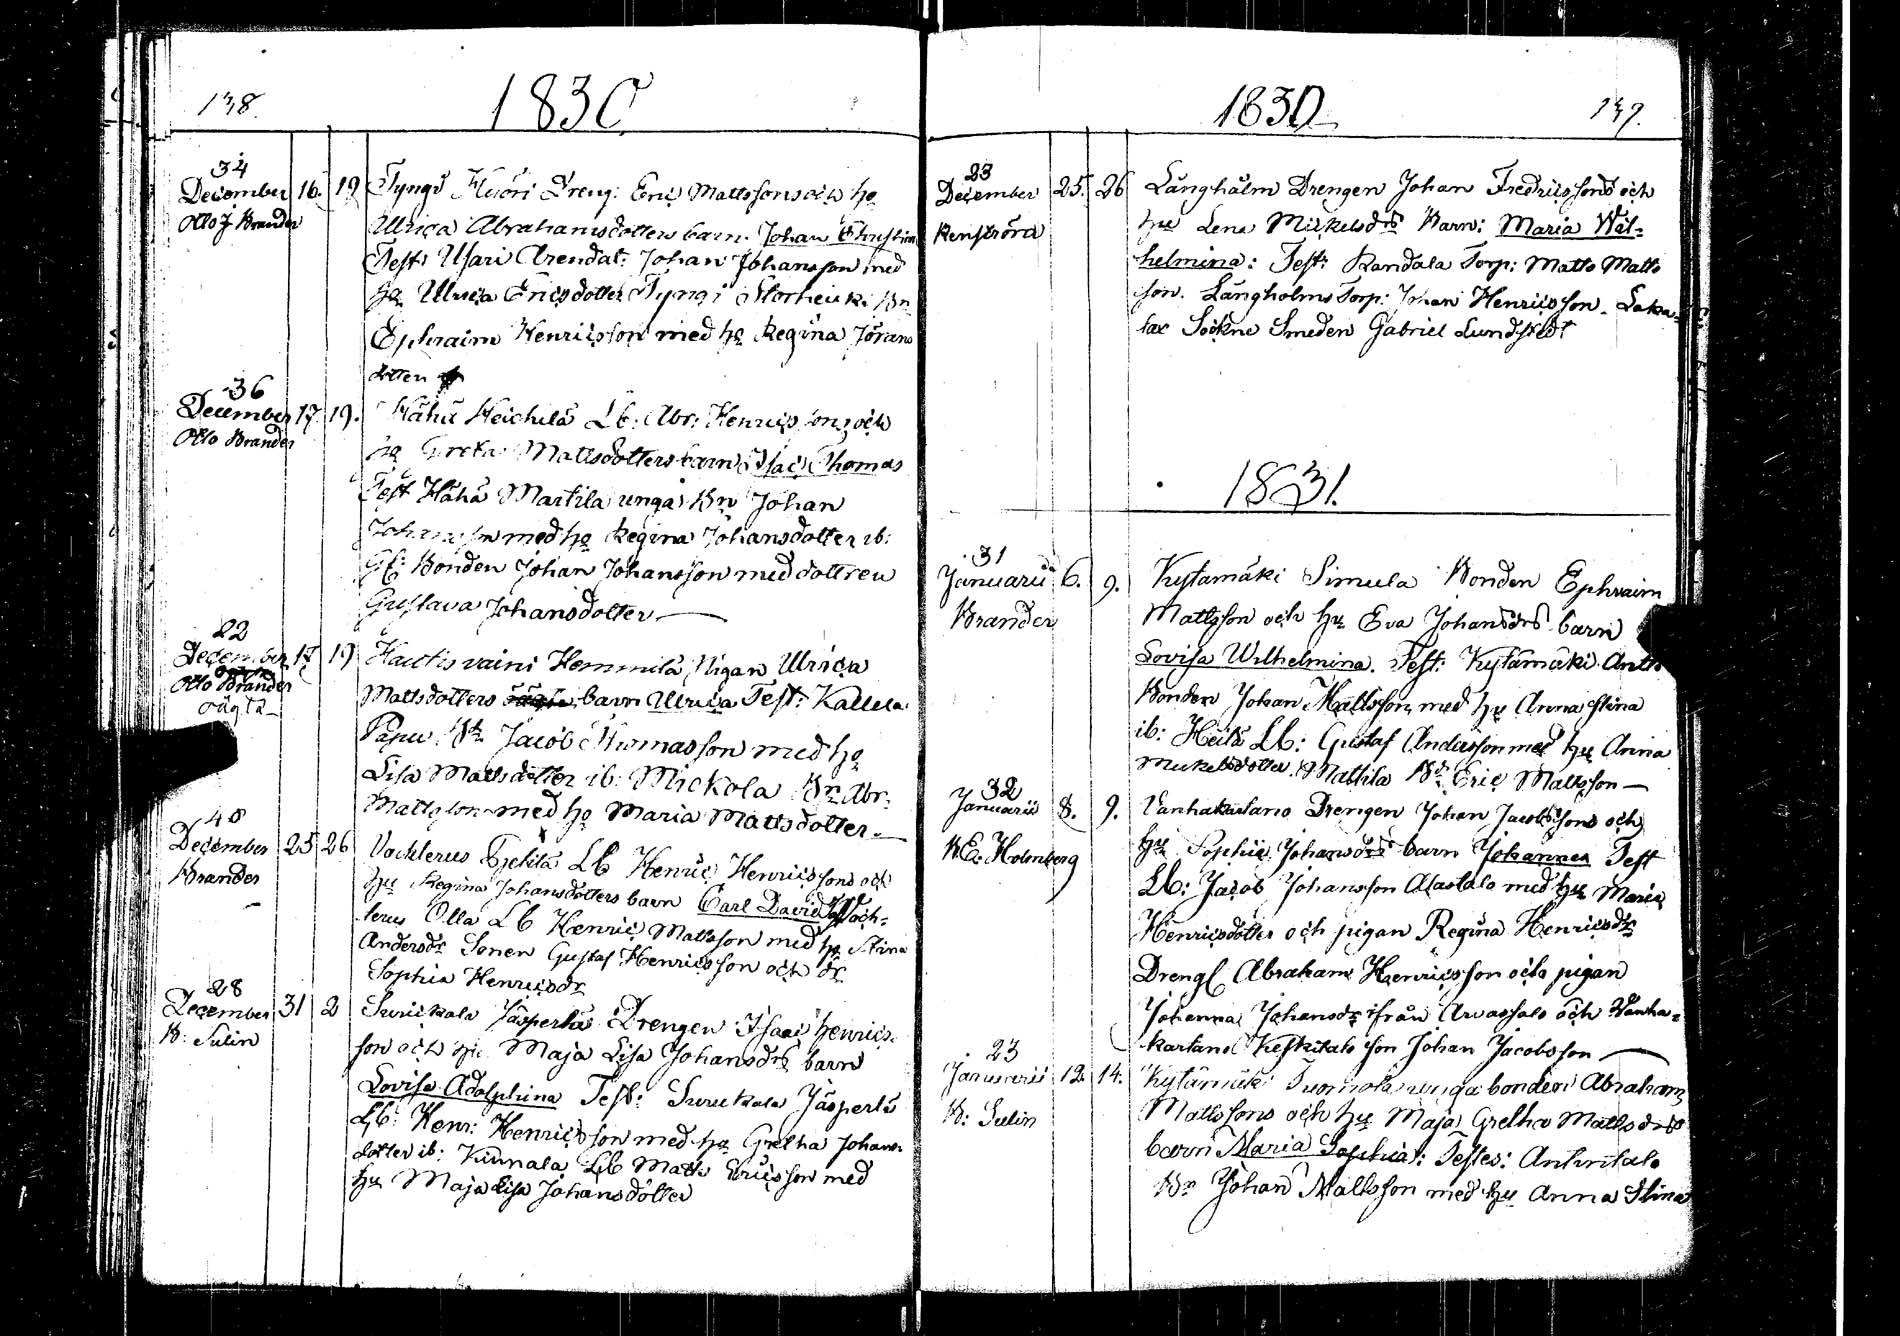 138.
1830
34
December 16. 19 Tyngi Huori Dreng: Eric Mattssons och hu
Otto J Brander
Ulrica Abrahamsdotters barn. Johan Christian
Test: Usari Arendat: Johan Johansson med
hu Ulrica Ericsdotter Tyngi Storheicki Bn
Ephraim Henricsson med hu Regina Jörans
dotter
36
December 17. 19. Hähä Heickilä Lb: Abr: Henricssons och
Otto Brander
hu Greta Mattsdotters barn Isac Thomas
Test Hähä Martila unga Bn Johan
Johansson med hu Regina Johansdotter ib:
Gl: Bonden Johan Johansson med dottren
Gustava Johansdotter
22
December 17 19 Hautis vaini Hemmilä Pigan Ulrica
Otto Brander
oägta
Mattsdotters barn Ulrica Test: Kallela
Papu Bn Jacob Thomasson med hu
Lisa Mattsdotter ib: Mickola Bn Abr:
Mattsson med hu Maria Mattsdotter.
40
December 25 26 Vocklerus Lb Henric Henricssons och
Brander
hu Regina Johansdotters barn Carl David Vock-
lerus Olla Lb Henric Mattsson med hu Stina
Andersdr Sonen Gustaf Henricsson och dr
Sophia Henricsdr
28
December 31 2 Surickala Jäsperlä Drengen Isaac Henrics-
B: Sulin
son och hu Maja Lisa Johansdrs barn
Lovisa Adolphina Test: Surickala Jäsperlä
Lb: Henr: Henricsson med hu Gretha Johans
dotter ib: Kinnala Lb Matts Ericsson med
hu Maja Lisa Johansdotter
139.
1830
23
December 25. 26 Långholm Drengen Johan Fredricssons och
Renströrd
hu Lena Mickelsdrs Barn: Maria Wil-
helmina: Test: Randala Torp: Matts Matts
son. Långholms Torp: Johan Henricsson. Laka-
lax Sockne Smeden Gabriel Lundstedt
1831.
31
Januarii 6. 9. Kytämäki Simula Bonden Ephraim
Brander
Mattsson och hu Eva Johansdrs barn
Lovisa Wilhelmina. Test: Kytämäki Antt
Bonden Johan Mattsson med hu Anna Stina
ib: Heilä Lb: Gustaf Andersson med hu Anna
Mickelsdotter, Mattila Bs Eric Mattsson
32
Januarii 8. 9. Vanhakartano Drengen Johan Jacobssons och
B E: Holmberg
hu Sophia Johansdrs barn Johannes Test
Lb: Jacob Johansson Alastalo med hu Maria
Henricsdotter och pigan Regina Henricsdr
Drengl Abraham Henricsson och pigan
Johanna Johansdr ifrån Arvassalo och Vanha-
kartano Keskitalo son Johan Jacobsson
23
Januarii 12. 14. Kytämäki Tuomola unga bonden Abraham
B: Sulin
Mattssons och hu Maja Gretha Mattsdrs
barn Maria Sophia: Testes: Anhritalo
Bn Johan Mattsson med hu Anna Stina